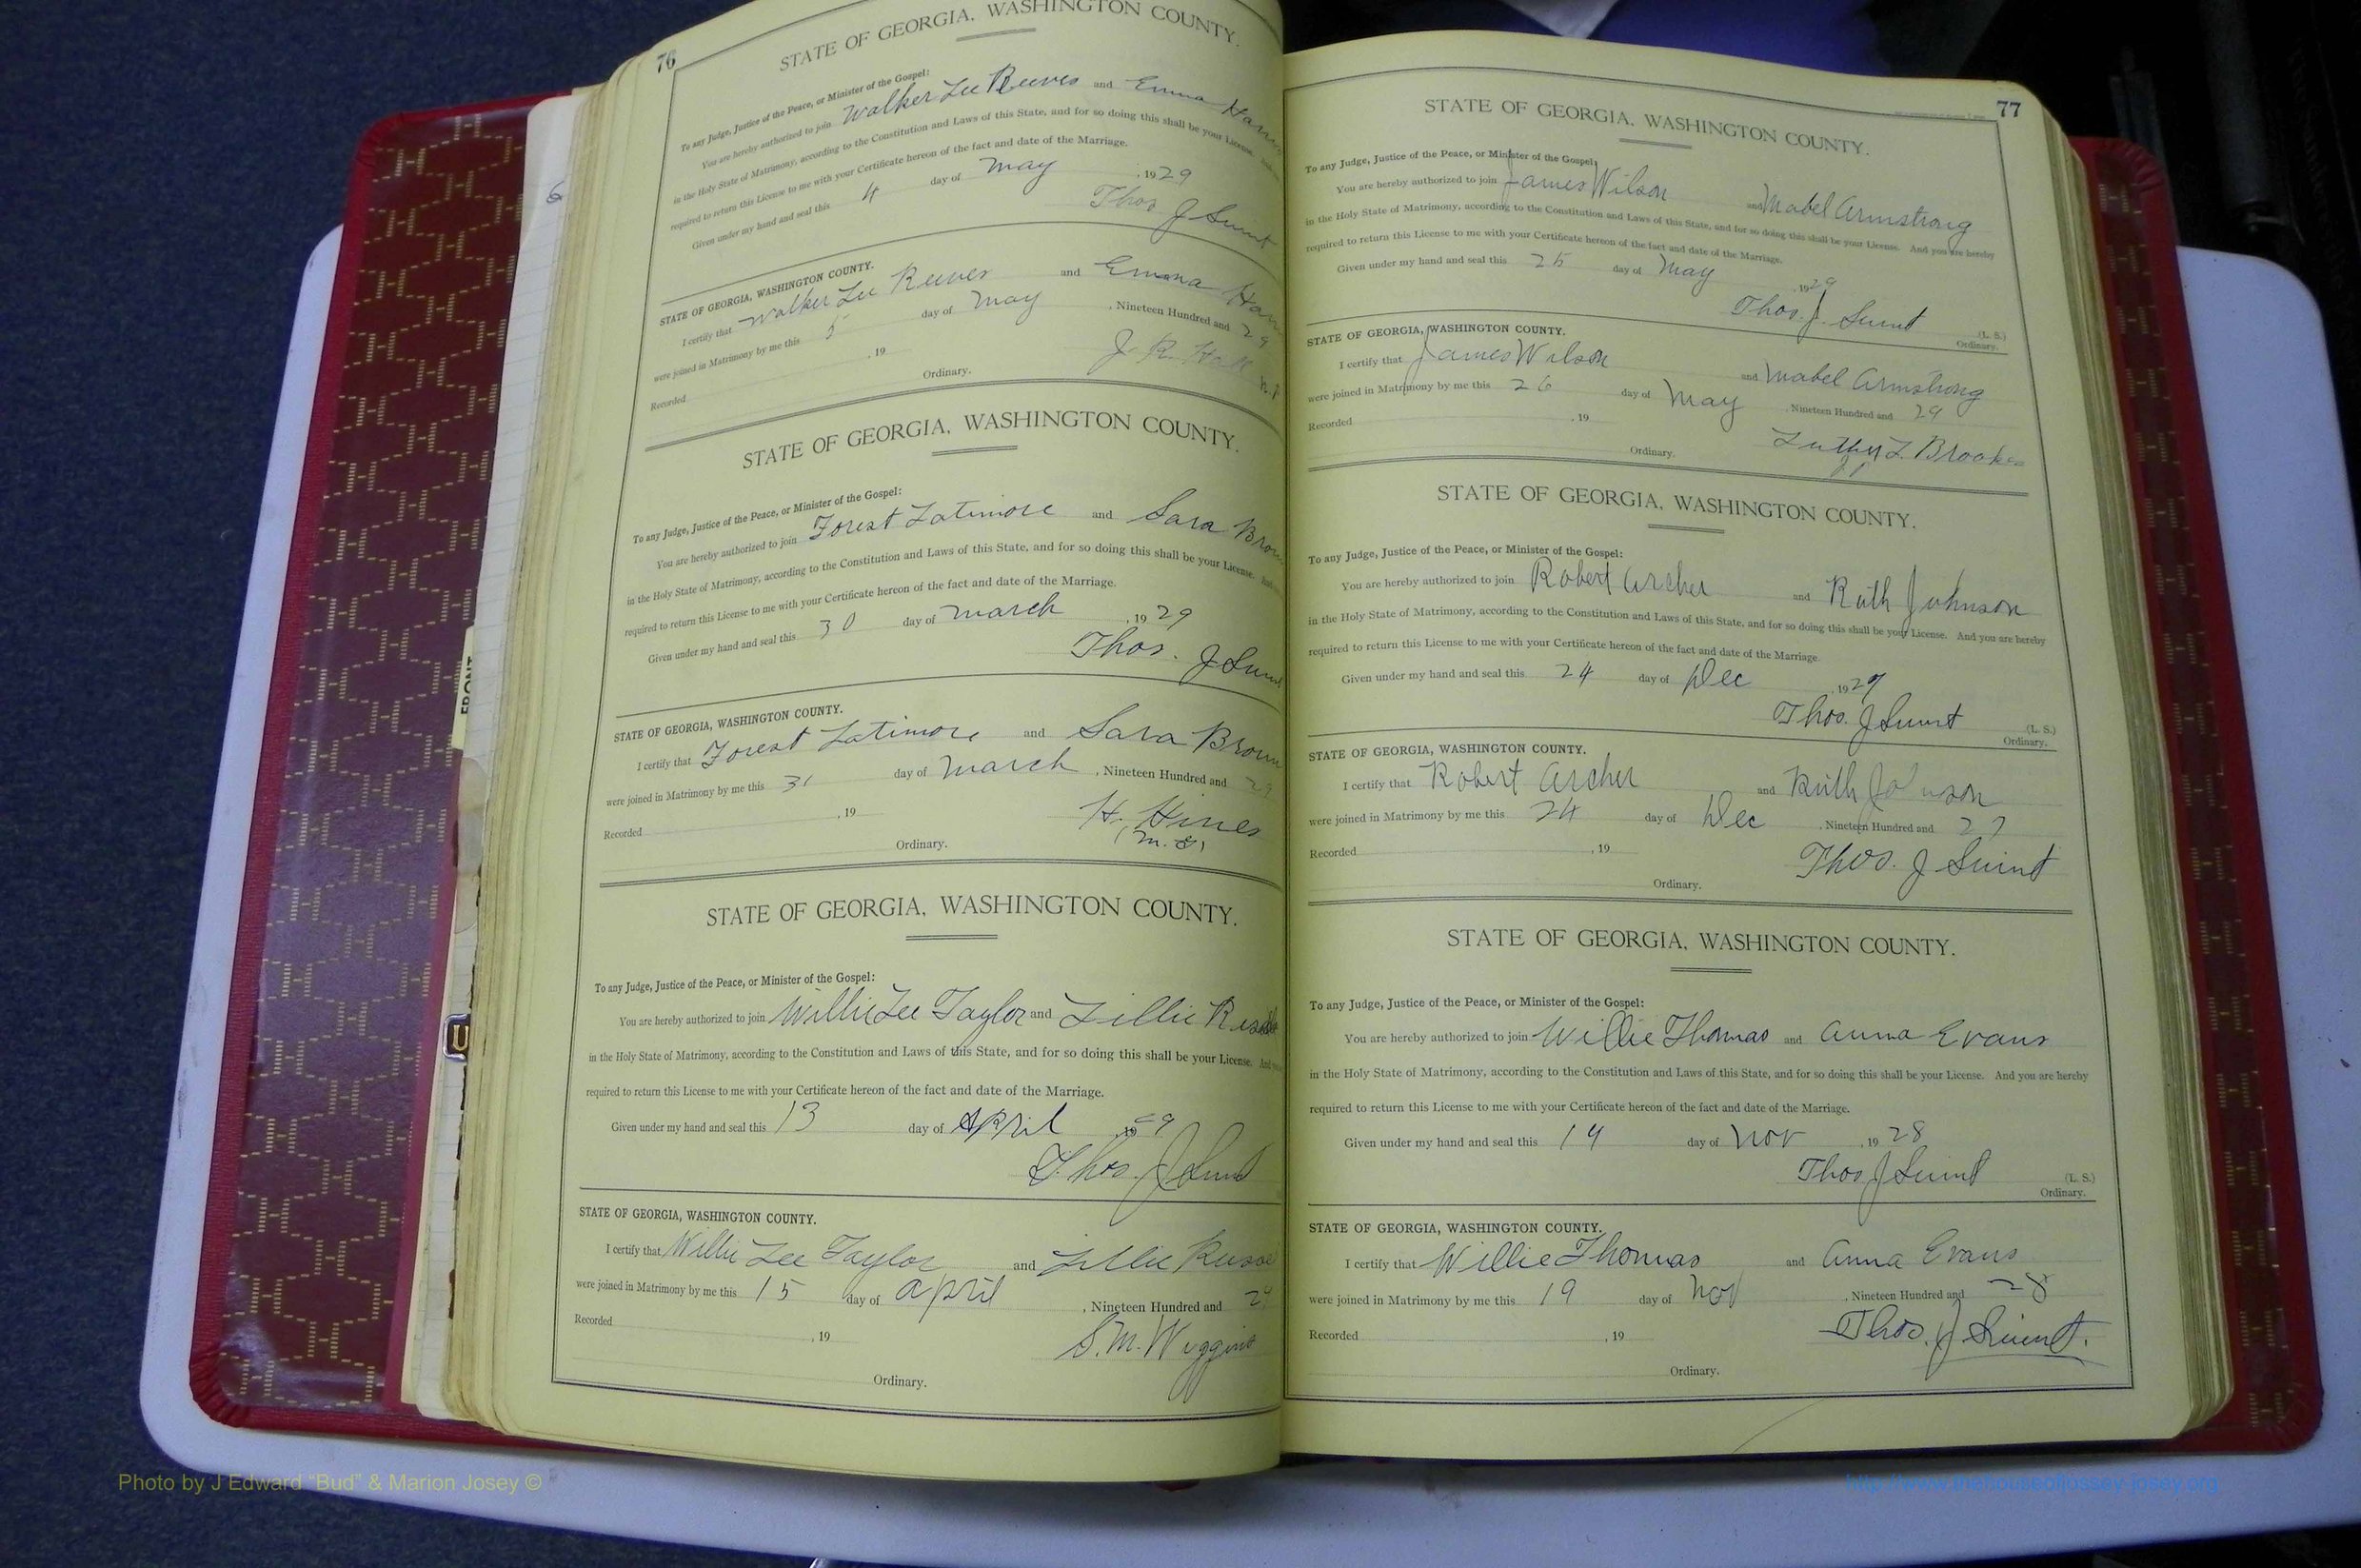 76
STATE OF GEORGIA, WASHINGTON COUNTY.
To any Judge, Justice of the Peace, or Minister of the Gospel:
You are hereby authorized to join Walker Lee Reeves and Emma
in the Holy State of Matrimony, according to the Constitution and Laws of this State, and for so doing this shall be your License.
required to return this License to me with your Certificate hereon of the fact and date of the Marriage.
Given under my hand and seal this 4 day of May, 1929
Thos J
STATE OF GEORGIA, WASHINGTON COUNTY.
I certify that Walker Lee Reeves and Emma
were joined in Matrimony by me this 5 day of May, Nineteen Hundred and 29
Recorded , 19 J. R. Hall
Ordinary.
STATE OF GEORGIA, WASHINGTON COUNTY.
To any Judge, Justice of the Peace, or Minister of the Gospel:
You are hereby authorized to join Forest Latimore and Sara
in the Holy State of Matrimony, according to the Constitution and Laws of this State, and for so doing this shall be your License.
required to return this License to me with your Certificate hereon of the fact and date of the Marriage.
Given under my hand and seal this 30 day of March, 1929
Thos. J
STATE OF GEORGIA, WASHINGTON COUNTY.
I certify that Forest Latimore and Sara Brown
were joined in Matrimony by me this 31 day of March, Nineteen Hundred and 29
Recorded , 19 H. Hines
Ordinary.
STATE OF GEORGIA, WASHINGTON COUNTY.
To any Judge, Justice of the Peace, or Minister of the Gospel:
You are hereby authorized to join Willie Lee Taylor and Lillie
in the Holy State of Matrimony, according to the Constitution and Laws of this State, and for so doing this shall be your License.
required to return this License to me with your Certificate hereon of the fact and date of the Marriage.
Given under my hand and seal this 13 day of April
Thos. J
STATE OF GEORGIA, WASHINGTON COUNTY.
I certify that Willie Lee Taylor and Lillie
were joined in Matrimony by me this 15 day of April, Nineteen Hundred and
Recorded , 19 S. M. Wiggins
Ordinary.
77
STATE OF GEORGIA, WASHINGTON COUNTY.
To any Judge, Justice of the Peace, or Minister of the Gospel:
You are hereby authorized to join James Wilson and Mabel Armstrong
in the Holy State of Matrimony, according to the Constitution and Laws of this State, and for so doing this shall be your License. And you are hereby
required to return this License to me with your Certificate hereon of the fact and date of the Marriage.
Given under my hand and seal this 25 day of May, 1929
Thos. J. Swint (L. S.)
Ordinary.
STATE OF GEORGIA, WASHINGTON COUNTY.
I certify that James Wilson and Mabel Armstrong
were joined in Matrimony by me this 26 day of May, Nineteen Hundred and 29
Recorded , 19 Luther L. Brookes
Ordinary.
STATE OF GEORGIA, WASHINGTON COUNTY.
To any Judge, Justice of the Peace, or Minister of the Gospel:
You are hereby authorized to join Robert Archer and Ruth Johnson
in the Holy State of Matrimony, according to the Constitution and Laws of this State, and for so doing this shall be your License. And you are hereby
required to return this License to me with your Certificate hereon of the fact and date of the Marriage
Given under my hand and seal this 24 day of Dec, 1927
Thos. J Swint (L. S.)
Ordinary.
STATE OF GEORGIA, WASHINGTON COUNTY.
I certify that Robert Archer and Ruth Johnson
were joined in Matrimony by me this 24 day of Dec, Nineteen Hundred and 27
Recorded , 19 Thos. J Swint
Ordinary.
STATE OF GEORGIA, WASHINGTON COUNTY.
To any Judge, Justice of the Peace, or Minister of the Gospel:
You are hereby authorized to join Willie Thomas and Anna Evans
in the Holy State of Matrimony, according to the Constitution and Laws of this State, and for so doing this shall be your License. And you are hereby
required to return this License to me with your Certificate hereon of the fact and date of the Marriage.
Given under my hand and seal this 14 day of Nov, 1928
Thos J Swint (L. S.)
Ordinary.
STATE OF GEORGIA, WASHINGTON COUNTY.
I certify that Willie Thomas and Anna Evans
were joined in Matrimony by me this 19 day of Nov, Nineteen Hundred and 28
Recorded , 19 Thos. J Swint.
Ordinary.
FRONT
Photo by J Edward “Bud” & Marion Josey ©
http://www.thehouseofjossey-josey.org